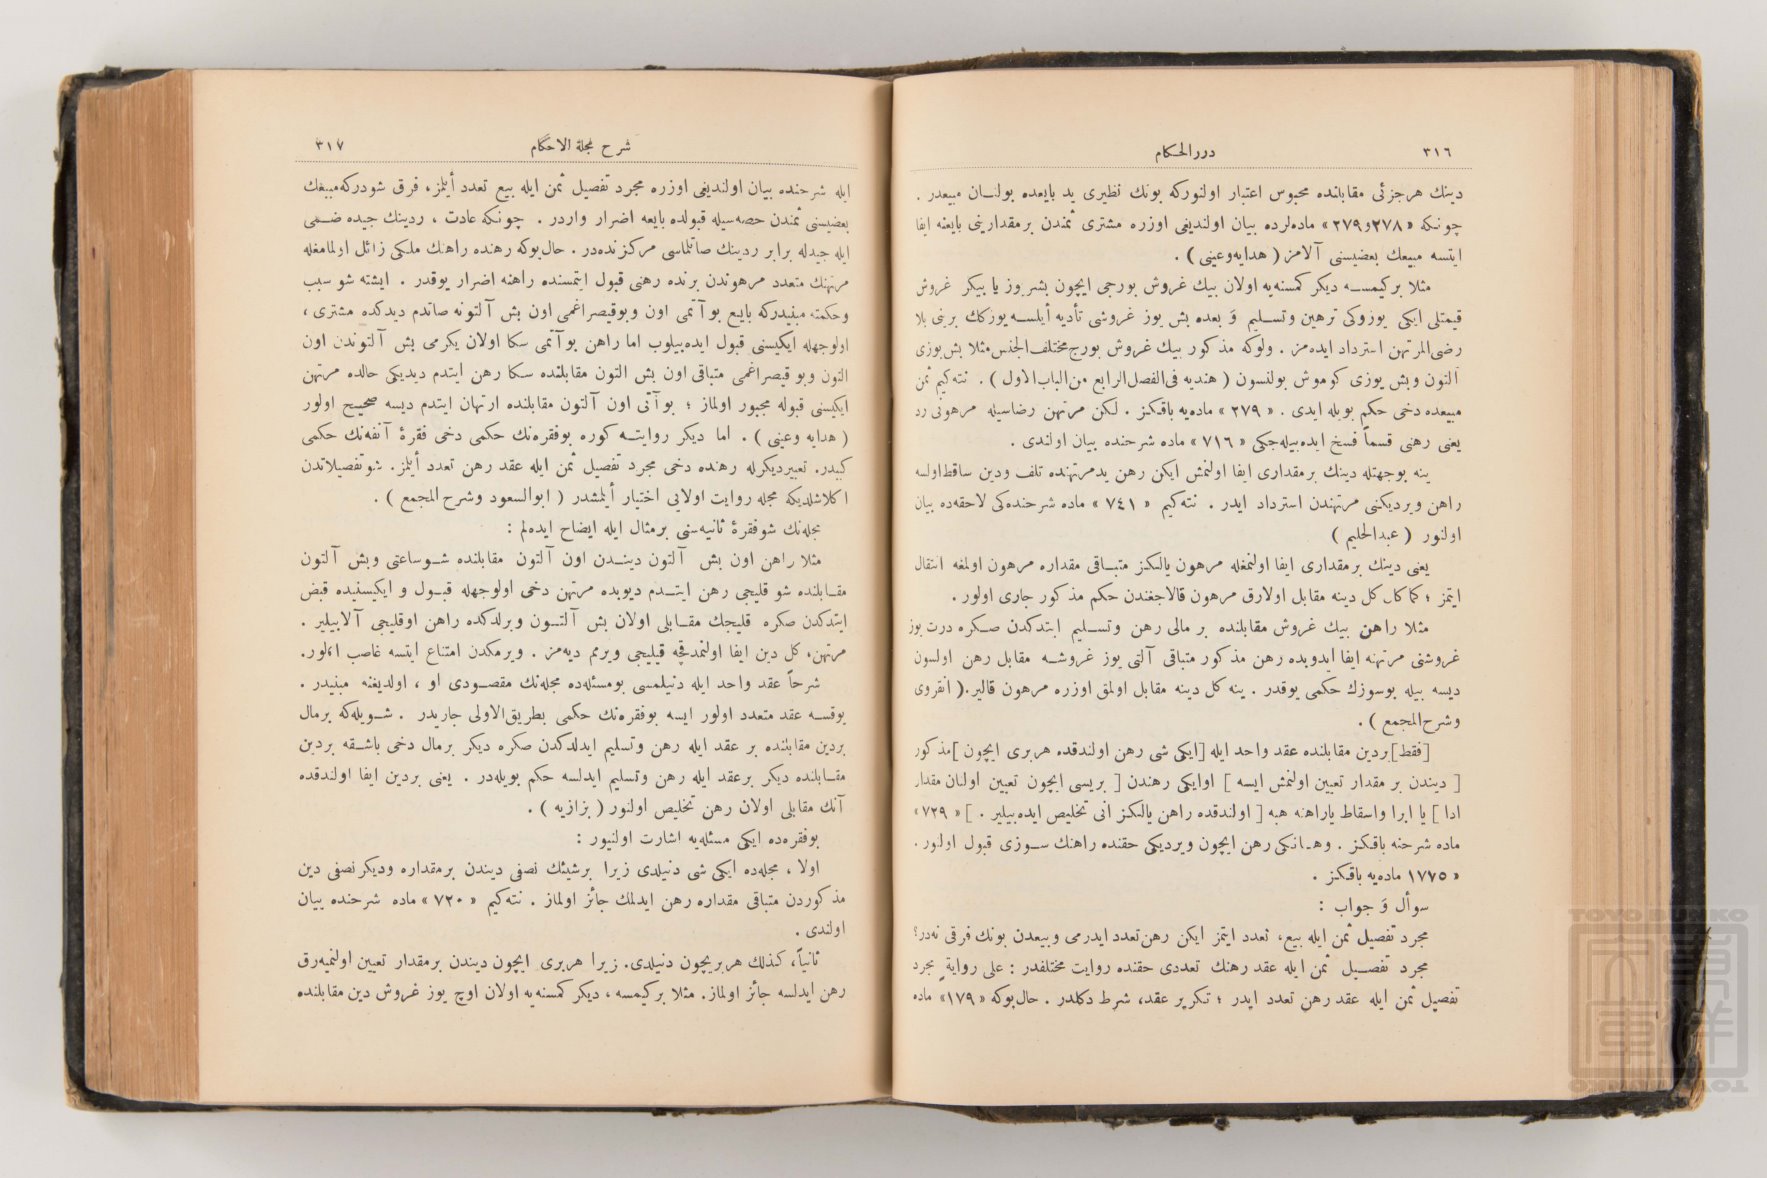 ٣١٦
دررالحكام
دينك هرجزئى مقابلنده محبوس اعتبار اولنوركه بونك نظيرى يد بايعده بولنـان مبيعدر .
چونكه «٢٧٨و٢٧٩» ماده‌لرده بيان اولنديغى اوزره مشترى ثمندن برمقدارينى بايعنه ايفا
ايتسه مبيعك بعضيسنى آلامز ( هدايه‌وعينى ) .
مثلا بركيمسـه ديكر كمسنه‌يه اولان بيك غروش بورجى ايچون بشريوز يا بيكر غروش
قيمتلى ايكى يوزوكى ترهين وتسـليم وَ بعده بش يوز غروشى تأديه أيلسـه يوزكك برينى بلا
رضى‌المرتهن استرداد ايده‌مز . ولوكه مذكور بيك غروش بورج مختلف‌الجنس مثلا بش يوزى
آلتون وبش يوزى كوموش بولنسون ( هنديه فى‌الفصل‌الرابع من‌الباب‌الاول ) . نته‌كيم ثمن
مبيعده دخى حكم بويله ايدى . « ٢٧٩ » ماده‌يه باقكز . لكن مرتهن رضاسيله مرهونى رد
يعنى رهنى قسماً فسخ ايده‌بيله‌جكى « ٧١٦ » ماده شرحنده بيان اولندى .
ينه بوجهتله دينك برمقدارى ايفا اولنمش ايكن رهن يدمرتهنده تلف ودين ساقط اولسه
راهن ويرديكنى مرتهندن استرداد ايدر . نته‌كيم « ٧٤١ » ماده شرحنده‌كى لاحقه‌ده بيان
اولنور ( عبدالحليم )
يعنى دينك برمقدارى ايفا اولنمغله مرهون يالكز متبـاقى مقداره مرهون اولمغه انتقال
ايتمز ؛ كماكان كل دينه مقابل اولارق مرهون قالاجغندن حكم مذكور جارى اولور .
مثلا راهن بيك غروش مقابلنده بر مالى رهن وتسـليم ايتدكدن صـكره درت يوز
غروشنى مرتهنه ايفا ايدوبده رهن مذكور متباقى آلتى يوز غروشـه مقابل رهن اولسون
ديسه بيله بوسوزك حكمى يوقدر . ينه كل دينه مقابل اولمق اوزره مرهون قالير.( انقروى
وشرح‌المجمع ) .
[فقط] بردين مقابلنده عقد واحد ايله [ايكى شى رهن اولندقده هربرى ايچون] مذكور
[ ديندن بر مقدار تعيين اولنمش ايسه ] اوايكى رهندن [ بريسى ايچون تعيين اولنان مقدار
ادا ] يا ابرا واسقاط ياراهنه هبه [ اولندقده راهن يالكز انى تخليص ايده‌بيلير . ] « ٧٢٩ »
ماده شرحنه باقكز . وهـانكى رهن ايچون ويرديكى حقنده راهنك سـوزى قبول اولنور .
« ١٧٧٥ ماده‌يه باقكز .
سوأل وَ جواب :
مجرد تفصيل ثمن ايله بيع، تعدد ايتمز ايكن رهن تعدد ايدرمى وبيعدن بونك فرقى نه‌در؟
مجرد تفصـيل ثمن ايله عقد رهنك تعددى حقنده روايت مختلفدر : على روايةٍ مجرد
تفصيل ثمن ايله عقد رهن تعدد ايدر ؛ تكرير عقد، شرط دكلدر . حال‌بوكه « ١٧٩» ماده
شرح مجلة الاحكام
٣١٧
ايله شرحنده بيان اولنديغى اوزره مجرد تفصيل ثمن ايله بيع تعدد أيلمز، فرق شودركه مبيعك
بعضيسنى ثمندن حصه‌سيله قبولده بايعه اضرار واردر . چونكه عادت ، ردينك جيده ضـمى
ايله جيدله برابر ردينك صاتلماسى مركزنده‌در . حال‌بوكه رهنده راهنك ملكى زائل اولمامغله
مرتهنك متعدد مرهوندن برنده رهنى قبول ايتمسنده راهنه اضرار يوقدر . ايشته شو سبب
وحكمته مبنيدركه بايع بوآتمى اون وبوقيصراغمى اون بش آلتونه صاتدم ديدكده مشترى ،
اولوجهله ايكيسنى قبول ايده‌بيلوب اما راهن بوآتمى سكا اولان يكرمى بش آلتوندن اون
التون وبو قيصراغمى متباقى اون بش التون مقابلنده سكا رهن ايتدم ديديكى حالده مرتهن
ايكيسنى قبوله مجبور اولماز ؛ بوآتى اون آلتون مقابلنده ارتهان ايتدم ديسه صحيح اولور
( هدايه وعينى ) . اما ديكر روايتـه كوره بوفقره‌نك حكمى دخى فقرهٔ آنفه‌نك حكمى
كيبدر. تعبيرديكرله رهنده دخى مجرد تفصيل ثمن ايله عقد رهن تعدد أيلمز. شوتفصيلاتدن
اكلاشلديكه مجله روايت اولايى اختيار أيلمشدر ( ابوالسعود وشرح المجمع ) .
مجله‌نك شوفقرهٔ ثانيه‌سنى برمثال ايله ايضاح ايده‌لم :
مثلا راهن اون بش آلتون دينـدن اون آلتون مقابلنده شـوساعتى وبش آلتون
مقـابلنده شو قليجى رهن ايتـدم ديوبده مرتهن دخى اولوجهله قبـول و ايكيسنيده قبض
ايتدكدن صكره قليجك مقـابلى اولان بش آلتـون ويرلدكده راهن اوقليجى آلابيلير .
مرتهن، كل دين ايفا اولنمدقچه قيليجى ويرمم ديه‌مز . ويرمكدن امتناع ايتسه غاصب اولور.
شرحاً عقد واحد ايله دنيلمسى بومسئله‌ده مجله‌نك مقصـودى او ، اولديغنه مبنيدر .
يوقسـه عقد متعدد اولور ايسه بوفقره‌نك حكمى بطريق‌الاولى جاريدر . شـويله‌كه برمال
بردين مقابلنده بر عقد ايله رهن وتسليم ايدلدكدن صكره ديكر برمال دخى باشـقه بردين
مقـابلنده ديكر برعقد ايله رهن وتسليم ايدلسه حكم بويله‌در . يعنى بردين ايفا اولندقده
آنك مقابلى اولان رهن تخليص اولنور ( بزازيه ) .
بوفقره‌ده ايكى مسئله‌يه اشارت اولنيور :
اولا ، مجله‌ده ايكى شى دنيلدى زيرا برشيئك نصفى ديندن برمقداره وديكر نصفى دين
مذكوردن متباقى مقداره رهن ايدلمك جائز اولماز . نته‌كيم « ٧٢٠ » ماده شرحنده بيان
اولندى .
ثانياً، كذلك هربريچون دنيلدى. زيرا هربرى ايچون ديندن برمقدار تعيين اولنميه‌رق
رهن ايدلسه جائز اولماز. مثلا بركيمسه ، ديكر كمسنه‌يه اولان اوچ يوز غروش دين مقابلنده
TOYO BUNKO
東洋
文庫
TOYO BUNKO